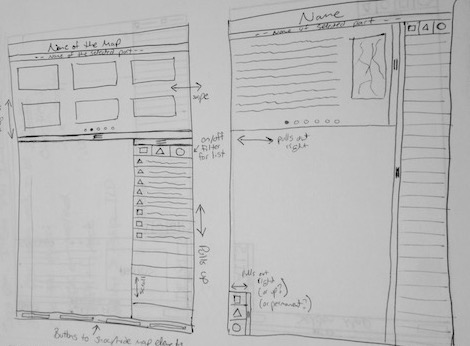 Name of the Map
-- Name of the selected part --
on/off
filter
for list
Pulls up
Buttons to show/hide map
Name
-- Name of selected part --
pulls out
right
pulls out
right
(or up?)
(or permanent?)